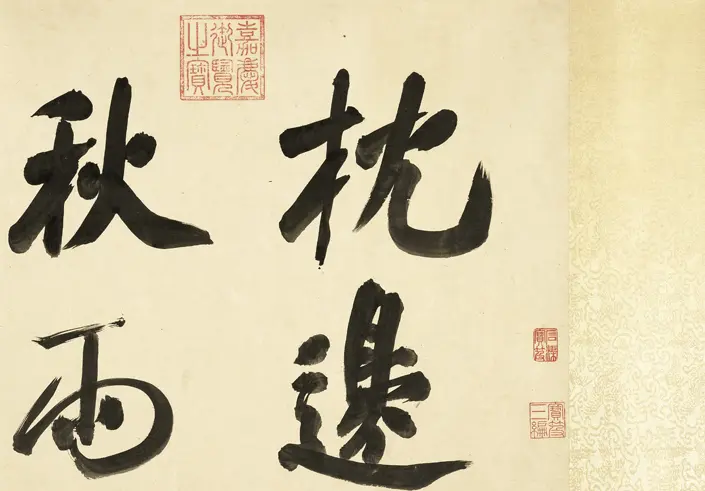 枕邊
秋雨
嘉慶御覽之寶
石渠寶笈
寶笈三編